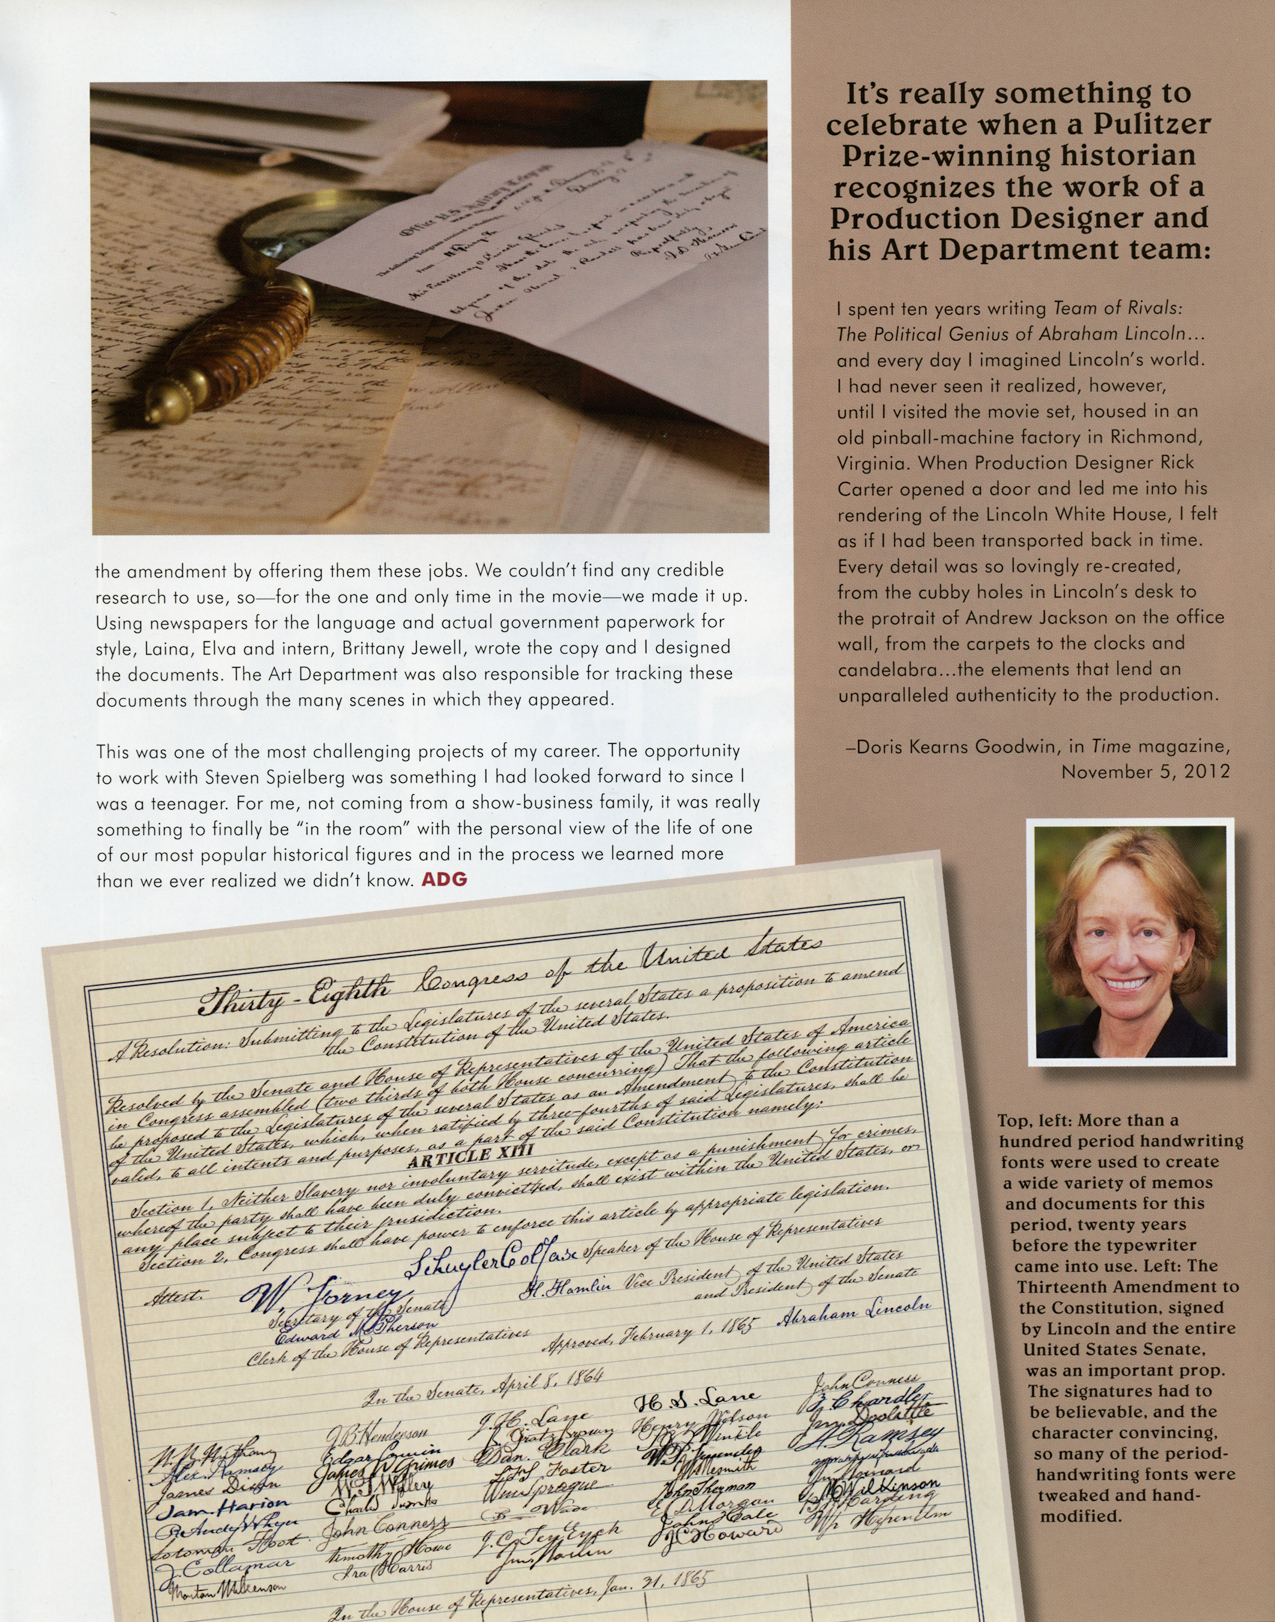 the amendment by offering them these jobs. We couldn't find any credible
research to use, so—for the one and only time in the movie—we made it up.
Using newspapers for the language and actual government paperwork for
style, Laina, Elva and intern, Brittany Jewell, wrote the copy and I designed
the documents. The Art Department was also responsible for tracking these
documents through the many scenes in which they appeared.
This was one of the most challenging projects of my career. The opportunity
to work with Steven Spielberg was something I had looked forward to since I
was a teenager. For me, not coming from a show-business family, it was really
something to finally be "in the room" with the personal view of the life of one
of our most popular historical figures and in the process we learned more
than we ever realized we didn't know. ADG
It's really something to
celebrate when a Pulitzer
Prize-winning historian
recognizes the work of a
Production Designer and
his Art Department team:
I spent ten years writing Team of Rivals:
The Political Genius of Abraham Lincoln...
and every day I imagined Lincoln's world.
I had never seen it realized, however,
until I visited the movie set, housed in an
old pinball-machine factory in Richmond,
Virginia. When Production Designer Rick
Carter opened a door and led me into his
rendering of the Lincoln White House, I felt
as if I had been transported back in time.
Every detail was so lovingly re-created,
from the cubby holes in Lincoln's desk to
the protrait of Andrew Jackson on the office
wall, from the carpets to the clocks and
candelabra...the elements that lend an
unparalleled authenticity to the production.
–Doris Kearns Goodwin, in Time magazine,
November 5, 2012
Thirty-Eighth Congress of the United States
A Resolution: Submitting to the Legislatures of the several States a proposition to amend
the Constitution of the United States.
Resolved by the Senate and House of Representatives of the United States of America
in Congress assembled (two thirds of both House concurring) That the following article
be proposed to the Legislatures of the several States as an Amendment to the Constitution
of the United States, which, when ratified by three-fourths of said Legislatures, shall be
valed, to all intents and purposes, as a part of the said Constitution namely:
ARTICLE XIII
Section 1, Neither Slavery nor involuntary servitude, except as a punishment for crimes,
whereof the party shall have been duly convicted, shall exist within the United States, or
any place subject to their jurisdiction.
Section 2, Congress shall have power to enforce this article by appropriate legislation.
Schuyler Colfaxe Speaker of the House of Representatives
Attest. W. Forney H. Hamlin Vice President of the United States
Secretary of the Senate and President of the Senate
Edward McPherson
Clerk of the House of Representatives Approved, February 1, 1865 Abraham Lincoln
In the Senate, April 8, 1864
J.B. Henderson J.H. Lane H. S. Lane John Conness
Edgar Cowin Henry Wilson Z. Chardler
Alex. Ramsey James W Grimes Dan. Clark
James Dixon L.F.S. Foster A. Ramsey
Sam Harlon Wm Sprague John Sherman
John Conness B. Wade Morgan M. Wilkinson
Solomon Foot Timothy Howe J.C. Ten Eyck John Hale B. Harding
J. Collamar Ira Harris JC Howard
Morton Wilkenson
In the House of Representatives, Jan. 31, 1865
Top, left: More than a
hundred period handwriting
fonts were used to create
a wide variety of memos
and documents for this
period, twenty years
before the typewriter
came into use. Left: The
Thirteenth Amendment to
the Constitution, signed
by Lincoln and the entire
United States Senate,
was an important prop.
The signatures had to
be believable, and the
character convincing,
so many of the period-
handwriting fonts were
tweaked and hand-
modified.